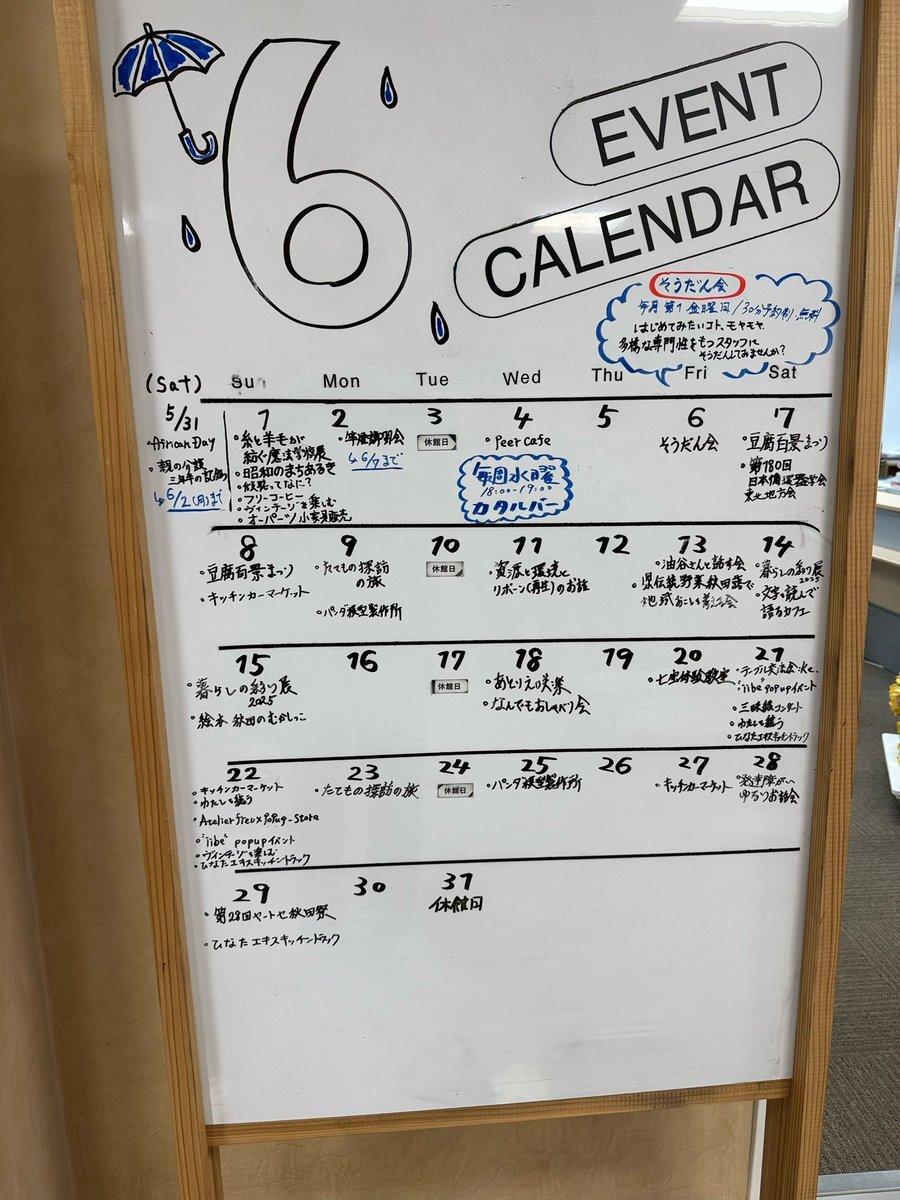 6
EVENT
CALENDAR
そうだん会
毎月 第1 金曜日/30分予約制 無料
はじめてみたいコト、モヤモヤ
多様な専門性をもつスタッフに
そうだんしてみませんか?
(Sat) Sun Mon Tue Wed Thu Fri Sat
5/31
・African Day
・親の介護
三年半の記録
↳6/2(月)まで
1
・糸と羊毛が
紡ぐ魔法学校展
・昭和のまちあるき
・飲歌ってなに?
・フリーコーヒー
・ヴィンテージを楽しむ
・オーパーツ小家具販売
2
講習会
↳6/7まで
3
休館日
4
・Peer Cafe
毎週水曜
18:00-19:00
カタルバー
5
6
そうだん会
7
・豆腐百景まつり
・第180回
日本循環器学会
東北地方会
8
・豆腐百景まつり
・キッチンカーマーケット
9
・たてもの探訪
の旅
・パンダ模型製作所
10
休館日
11
・資源と環境と
リボーン(再生)のお話
12
13
・油谷さんと話す会
・県伝統野菜秋田蕗で
地域おこしを考える会
14
・暮らしの彩り展
2025
・文学を読んで
語るカフェ
15
・暮らしの彩り展
2025
・絵本 秋田のむかしっこ
16
17
休館日
18
・あとりえ咲楽
・なんでもおしゃべり会
19
20
・七宝体験教室
21
・テーブル交流会
・"jibe" popupイベント
・三味線コンサート
・わたしを繕う
・ひなたエキスキッチントラック
22
・キッチンカーマーケット
・わたしを繕う
・Atelier freu×PoPup-Store
・"jibe" popupイベント
・ヴィンテージを楽しむ
・ひなたエキスキッチントラック
23
・たてもの探訪の旅
24
休館日
25
・パンダ模型製作所
26
27
・キッチンカーマーケット
28
・発達障がい
ゆるりお話会
29
・第28回ヤートセ秋田祭
・ひなたエキスキッチントラック
30
31
休館日